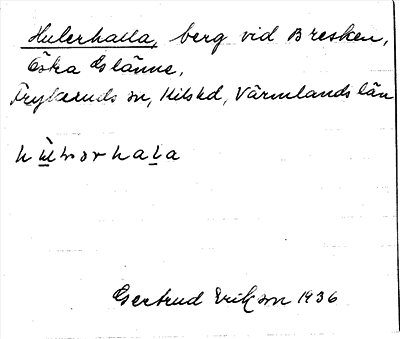 Hulerhalla, berg vid Bresken,
Östra Glänne,
Frykeruds sn, Kilshd, Värmlands län
Gertrud Erikson 1936